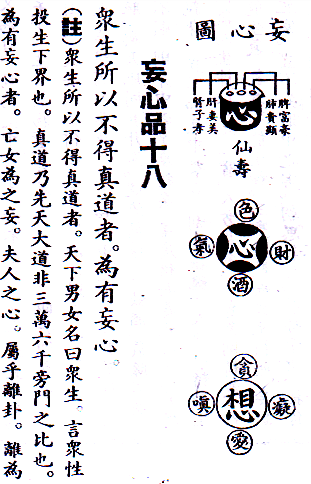 妄心圖
脾富豪
肺貴顯
心
肝妻美
腎子孝
仙壽
色
財
心
氣
酒
貪
癡
想
嗔
愛
妄心品十八
衆生所以不得真道者。為有妄心。
(註)衆生所以不得真道者。天下男女名曰衆生。言衆性
投生下界也。真道乃先天大道非三萬六千旁門之比也。
為有妄心者。亡女為之妄。夫人之心。屬乎離卦。離為